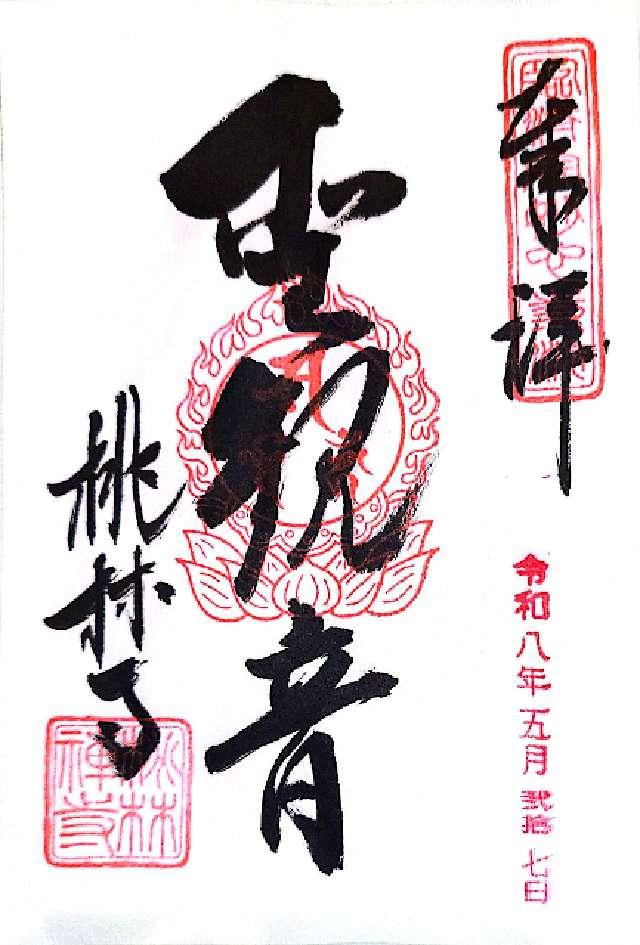 奉拝
令和八年五月弐拾七日
聖観音
桃林寺
桃林禅寺